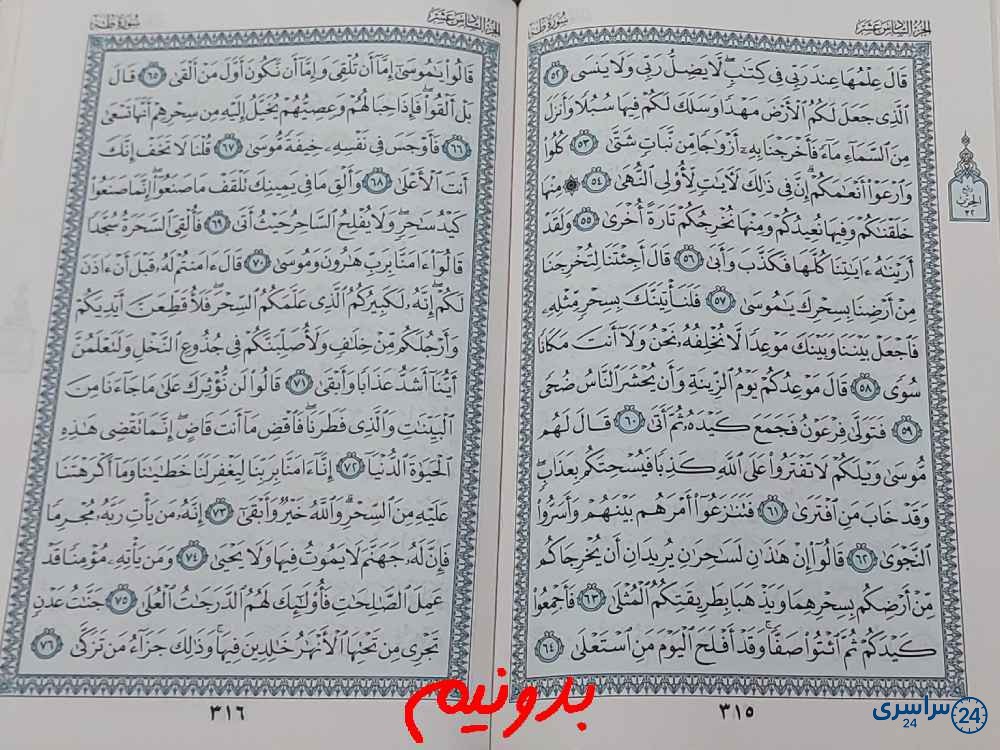 الجزء السادس عشر
سورة طه
قَالَ عِلْمُهَا عِندَ رَبِّي فِي كِتَٰبٖۖ لَّا يَضِلُّ رَبِّي وَلَا يَنسَى ٥٢
ٱلَّذِي جَعَلَ لَكُمُ ٱلۡأَرۡضَ مَهۡدٗا وَسَلَكَ لَكُمۡ فِيهَا سُبُلٗا وَأَنزَلَ
مِنَ ٱلسَّمَآءِ مَآءٗ فَأَخۡرَجۡنَا بِهِۦٓ أَزۡوَٰجٗا مِّن نَّبَاتٖ شَتَّىٰ ٥٣ كُلُواْ
وَٱرۡعَوۡاْ أَنۡعَٰمَكُمۡۚ إِنَّ فِي ذَٰلِكَ لَأٓيَٰتٖ لِّأُوْلِي ٱلنُّهَىٰ ٥٤ ۞ مِنۡهَا
خَلَقۡنَٰكُمۡ وَفِيهَا نُعِيدُكُمۡ وَمِنۡهَا نُخۡرِجُكُمۡ تَارَةً أُخۡرَىٰ ٥٥ وَلَقَدۡ
أَرَيۡنَٰهُ ءَايَٰتِنَا كُلَّهَا فَكَذَّبَ وَأَبَىٰ ٥٦ قَالَ أَجِئۡتَنَا لِتُخۡرِجَنَا
مِنۡ أَرۡضِنَا بِسِحۡرِكَ يَٰمُوسَىٰ ٥٧ فَلَنَأۡتِيَنَّكَ بِسِحۡرٖ مِّثۡلِهِۦ
فَٱجۡعَلۡ بَيۡنَنَا وَبَيۡنَكَ مَوۡعِدٗا لَّا نُخۡلِفُهُۥ نَحۡنُ وَلَآ أَنتَ مَكَانٗا
سُوٗى ٥٨ قَالَ مَوۡعِدُكُمۡ يَوۡمُ ٱلزِّينَةِ وَأَن يُحۡشَرَ ٱلنَّاسُ ضُحٗى
٥٩ فَتَوَلَّىٰ فِرۡعَوۡنُ فَجَمَعَ كَيۡدَهُۥ ثُمَّ أَتَىٰ ٦٠ قَالَ لَهُم
مُّوسَىٰ وَيۡلَكُمۡ لَا تَفۡتَرُواْ عَلَى ٱللَّهِ كَذِبٗا فَيُسۡحِتَكُم بِعَذَابٖۖ
وَقَدۡ خَابَ مَنِ ٱفۡتَرَىٰ ٦١ فَتَنَٰزَعُوٓاْ أَمۡرَهُم بَيۡنَهُمۡ وَأَسَرُّواْ
ٱلنَّجۡوَىٰ ٦٢ قَالُوٓاْ إِنۡ هَٰذَٰنِ لَسَٰحِرَٰنِ يُرِيدَانِ أَن يُخۡرِجَاكُم
مِّنۡ أَرۡضِكُم بِسِحۡرِهِمَا وَيَذۡهَبَا بِطَرِيقَتِكُمُ ٱلۡمُثۡلَىٰ ٦٣ فَأَجۡمِعُواْ
كَيۡدَكُمۡ ثُمَّ ٱئۡتُواْ صَفّٗاۚ وَقَدۡ أَفۡلَحَ ٱلۡيَوۡمَ مَنِ ٱسۡتَعۡلَىٰ ٦٤
٣١٥
الحزب
٣٢
الجزء السادس عشر
سورة طه
قَالُواْ يَٰمُوسَىٰٓ إِمَّآ أَن تُلۡقِيَ وَإِمَّآ أَن نَّكُونَ أَوَّلَ مَنۡ أَلۡقَىٰ ٦٥ قَالَ
بَلۡ أَلۡقُواْۖ فَإِذَا حِبَالُهُمۡ وَعِصِيُّهُمۡ يُخَيَّلُ إِلَيۡهِ مِن سِحۡرِهِمۡ أَنَّهَا تَسۡعَىٰ
٦٦ فَأَوۡجَسَ فِي نَفۡسِهِۦ خِيفَةٗ مُّوسَىٰ ٦٧ قُلۡنَا لَا تَخَفۡ إِنَّكَ
أَنتَ ٱلۡأَعۡلَىٰ ٦٨ وَأَلۡقِ مَا فِي يَمِينِكَ تَلۡقَفۡ مَا صَنَعُوٓاْۖ إِنَّمَا صَنَعُواْ
كَيۡدُ سَٰحِرٖۖ وَلَا يُفۡلِحُ ٱلسَّاحِرُ حَيۡثُ أَتَىٰ ٦٩ فَأُلۡقِيَ ٱلسَّحَرَةُ سُجَّدٗا
قَالُوٓاْ ءَامَنَّا بِرَبِّ هَٰرُونَ وَمُوسَىٰ ٧٠ قَالَ ءَامَنتُمۡ لَهُۥ قَبۡلَ أَنۡ ءَاذَنَ
لَكُمۡۖ إِنَّهُۥ لَكَبِيرُكُمُ ٱلَّذِي عَلَّمَكُمُ ٱلسِّحۡرَۖ فَلَأُقَطِّعَنَّ أَيۡدِيَكُمۡ
وَأَرۡجُلَكُم مِّنۡ خِلَٰفٖ وَلَأُصَلِّبَنَّكُمۡ فِي جُذُوعِ ٱلنَّخۡلِ وَلَتَعۡلَمُنَّ
أَيُّنَآ أَشَدُّ عَذَابٗا وَأَبۡقَىٰ ٧١ قَالُواْ لَن نُّؤۡثِرَكَ عَلَىٰ مَا جَآءَنَا مِنَ
ٱلۡبَيِّنَٰتِ وَٱلَّذِي فَطَرَنَاۖ فَٱقۡضِ مَآ أَنتَ قَاضٍۖ إِنَّمَا تَقۡضِي هَٰذِهِ
ٱلۡحَيَوٰةَ ٱلدُّنۡيَآ ٧٢ إِنَّآ ءَامَنَّا بِرَبِّنَا لِيَغۡفِرَ لَنَا خَطَٰيَٰنَا وَمَآ أَكۡرَهۡتَنَا
عَلَيۡهِ مِنَ ٱلسِّحۡرِۗ وَٱللَّهُ خَيۡرٞ وَأَبۡقَىٰٓ ٧٣ إِنَّهُۥ مَن يَأۡتِ رَبَّهُۥ مُجۡرِمٗا
فَإِنَّ لَهُۥ جَهَنَّمَ لَا يَمُوتُ فِيهَا وَلَا يَحۡيَىٰ ٧٤ وَمَن يَأۡتِهِۦ مُؤۡمِنٗا قَدۡ
عَمِلَ ٱلصَّٰلِحَٰتِ فَأُوْلَٰٓئِكَ لَهُمُ ٱلدَّرَجَٰتُ ٱلۡعُلَىٰ ٧٥ جَنَّٰتُ عَدۡنٖ
تَجۡرِي مِن تَحۡتِهَا ٱلۡأَنۡهَٰرُ خَٰلِدِينَ فِيهَاۚ وَذَٰلِكَ جَزَآءُ مَن تَزَكَّىٰ ٧٦
٣١٦
بدونیم
سراسری 24
24